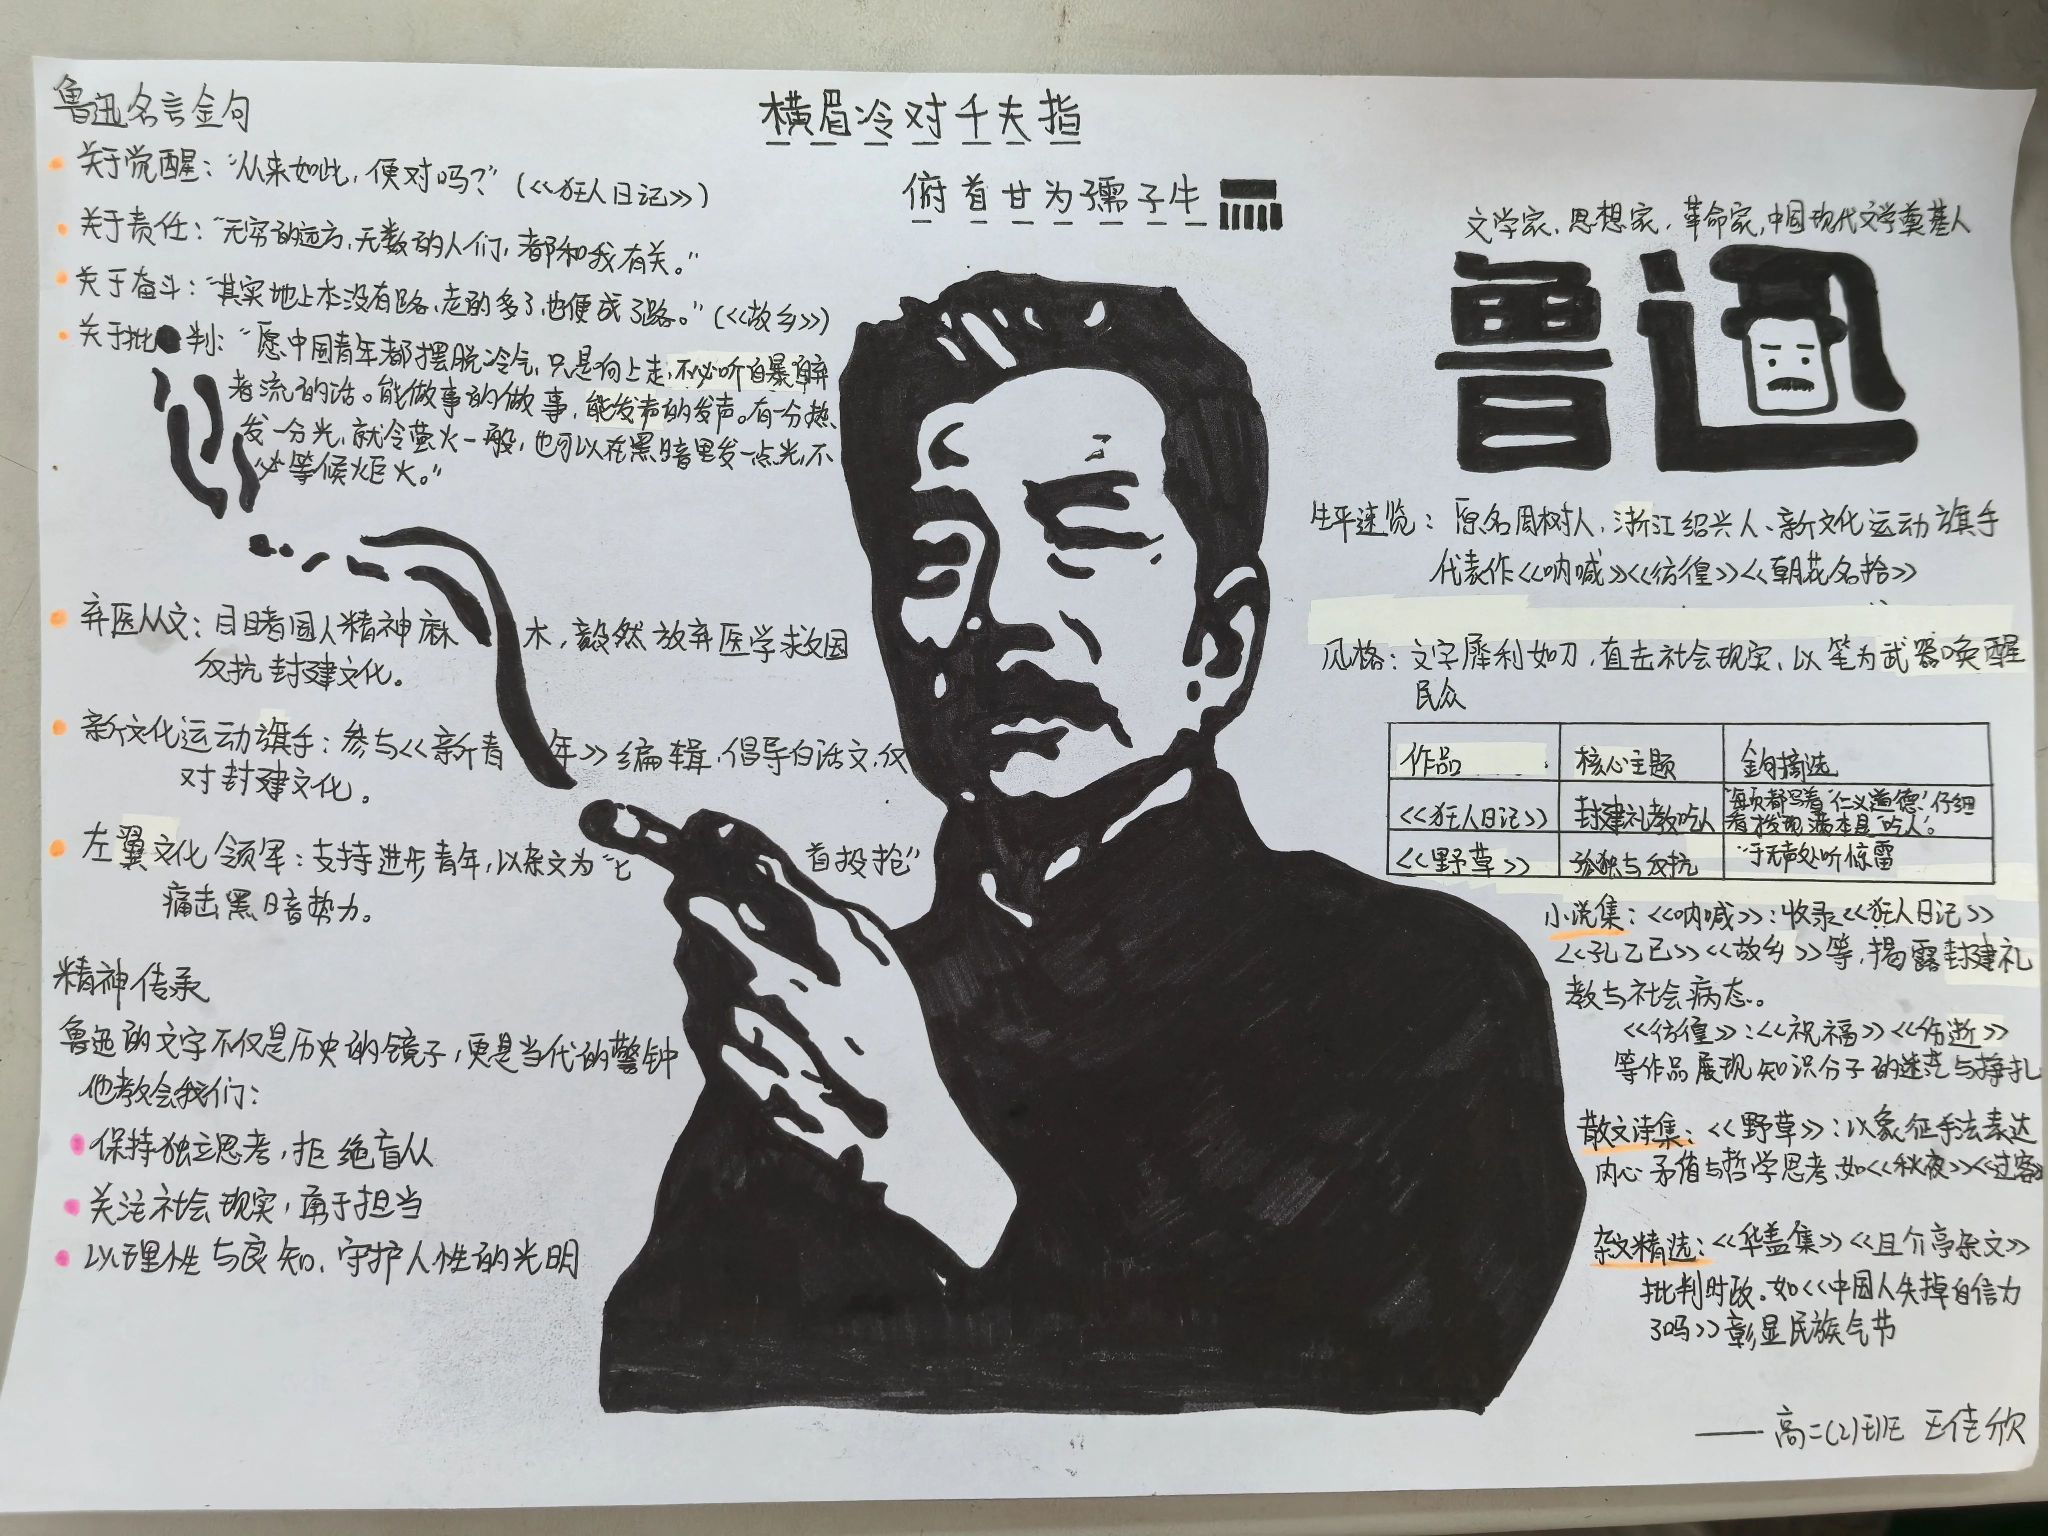 鲁迅名言金句
关于觉醒：“从来如此，便对吗？”(<<狂人日记>>)
关于责任：“无穷的远方，无数的人们，都和我有关。”
关于奋斗：“其实地上本没有路，走的多了，也便成了路。”(<<故乡>>)
关于批判：“愿中国青年都摆脱冷气，只是向上走，不必听自暴自弃
者流的话。能做事的做事，能发声的发声。有一分热，
发一分光，就令萤火一般，也可以在黑暗里发一点光，不
必等候炬火。”
弃医从文：目睹国人精神麻木，毅然放弃医学救国
反抗封建文化。
新文化运动旗手：参与<<新青年>>编辑，倡导白话文，反
对封建文化。
左翼文化领军：支持进步青年，以杂文为“匕首投抢”
痛击黑暗势力。
精神传承
鲁迅的文字不仅是历史的镜子，更是当代的警钟
他教会我们：
保持独立思考，拒绝盲从
关注社会现实，勇于担当
以理性与良知、守护人性的光明
横眉冷对千夫指
俯首甘为孺子牛
文学家、思想家，革命家，中国现代文学奠基人
鲁迅
生平速览：原名周树人，浙江绍兴人、新文化运动旗手
代表作<<呐喊>><<彷徨>><<朝花夕拾>>
风格：文字犀利如刀，直击社会现实，以笔为武器唤醒
民众
作品 核心主题 金句摘选
<<狂人日记>> 封建礼教吃人 “每页都写着‘仁义道德’，仔细
看才发现满本是‘吃人’。
<<野草>> 孤独与反抗 “于无声处听惊雷
小说集：<<呐喊>>：收录<<狂人日记>>
<<孔乙己>><<故乡>>等，揭露封建礼
教与社会病态。
<<彷徨>>：<<祝福>><<伤逝>>
等作品展现知识分子的迷茫与挣扎
散文诗集：<<野草>>：以象征手法表达
内心矛盾与哲学思考，如<<秋夜>><<过客>>
杂文精选：<<华盖集>><<且介亭杂文>>
批判时政。如<<中国人失掉自信力
了吗>>彰显民族气节
——高二(2)班 王佳欣